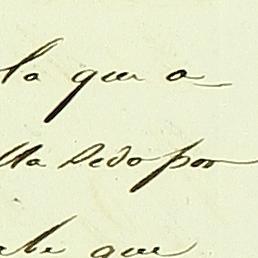 la que a
lla Dedo por
que